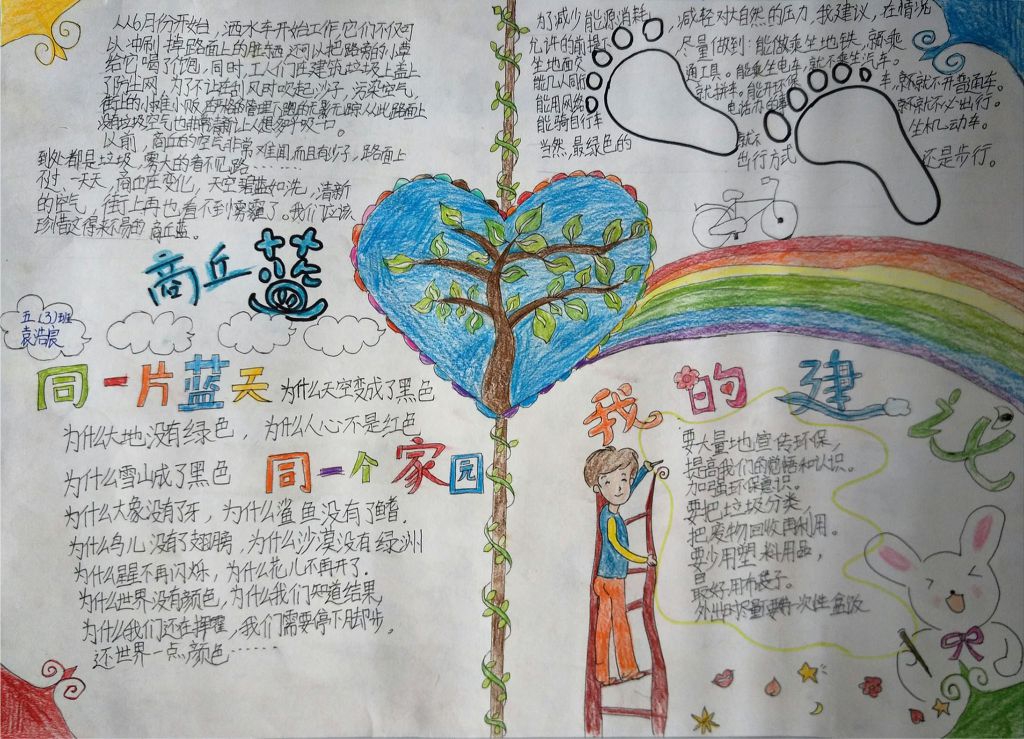 从6月份开始,洒水车开始工作,它们不仅可
以冲刷掉路面上的脏东西还可以把路旁的小草
给它喝了个饱,同时,工人们在建筑垃圾上盖上
了防尘网,为了不让在刮风时吹起沙子,污染空气,
街上的小摊小贩
没有垃圾空气也非常清新让人想多呼吸一口。
以前,商丘的空气非常难闻,而且有沙子,路面上
到处都是垃圾,雾大的看不见路……
不过,一天天,商丘在变化,天空湛蓝如洗,清新
的空气,街上再也看不到雾霾了。我们应该
珍惜这得来不易的商丘蓝。
商丘蓝
五(3)班
袁浩宸
同一片蓝天
为什么天空变成了黑色
为什么大地没有绿色,为什么人心不是红色
为什么雪山成了黑色
同一个家园
为什么大象没有了牙,为什么鲨鱼没有了鳍.
为什么鸟儿没有了翅膀,为什么沙漠没有绿洲
为什么星星不再闪烁,为什么花儿不再开了.
为什么世界没有颜色,为什么我们知道结果
为什么我们还在挥霍,我们需要停下脚步。
还世界一点颜色……
为了减少能源消耗,减轻对大自然的压力,我建议,在情况
允许的前提下 尽量做到:能做乘坐地铁,就乘
坐地面交通工具。能乘坐电车,就不乘坐汽车。
能几人同行 就拼车。能开环保车,就就不开普通车。
能用网络 电话 就不必出行。
能骑自行车 就不 坐机动车。
当然,最绿色的出行方式还是步行。
我的建议
要大量地宣传环保,
提高我们的觉悟和认识。
加强环保意识。
要把垃圾分类,
把废物回收再利用。
要少用塑料用品,
最好用布袋子。
外出时尽量 一次性盒饭